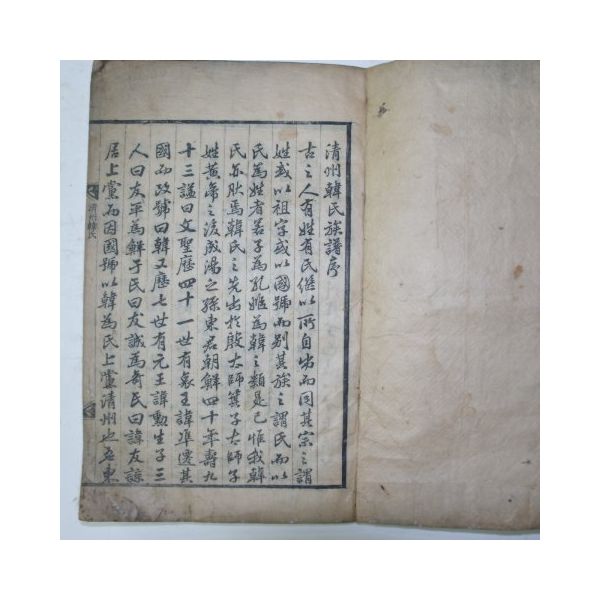 清州韓氏族譜序
古之人有姓有氏繼以所自出而同其宗之謂
姓或以祖字或以國號而別其族之謂氏而以
氏為姓者若子為孔姬為韓之類是已惟我韓
氏亦然焉韓氏之先出於殷太師箕子太師子
姓黃帝之後成湯之孫東君朝鮮四十年壽九
十三諡曰文聖歷四十一世有哀王諱準遷其
國而改號曰韓又歷七世有元王諱勳生子三
人曰友平為鮮于氏曰友誠為奇氏曰諱友諒
居上黨而因國號以韓為氏上黨清州也在東
清州韓氏